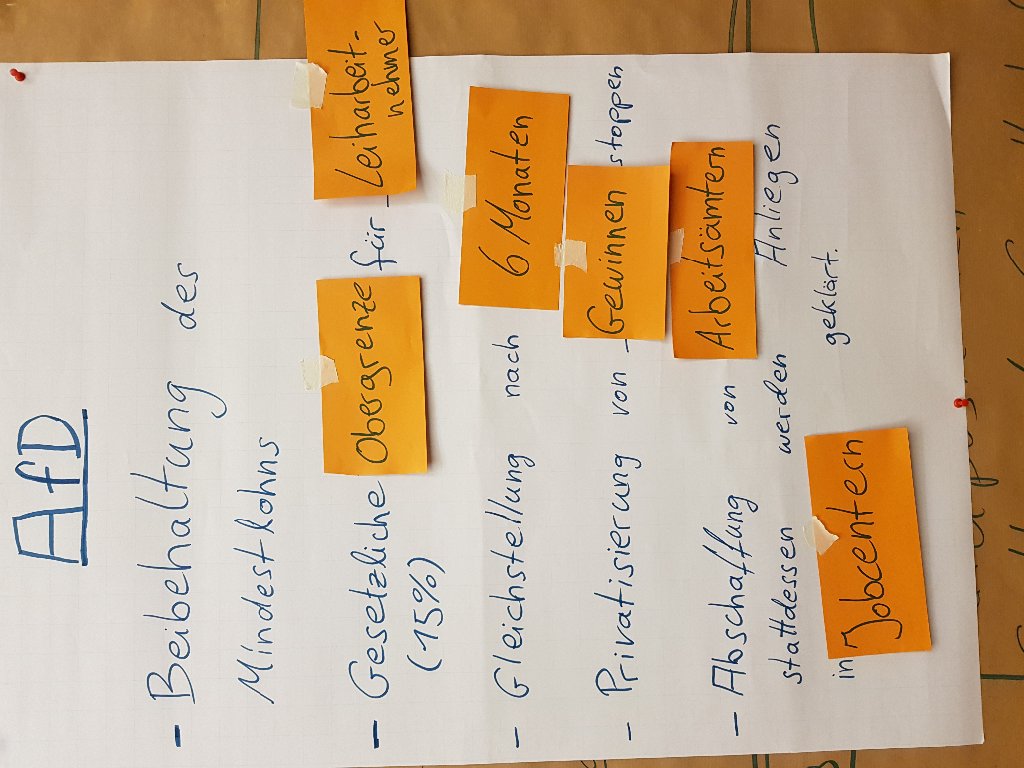 AfD
- Beibehaltung des
Mindestlohns
- Gesetzliche Obergrenze für Leiharbeit-
nehmer
(15%)
- Gleichstellung nach 6 Monaten
- Privatisierung von Gewinnen stoppen
- Abschaffung von Arbeitsämtern
stattdessen werden Anliegen
in Jobcentern geklärt.